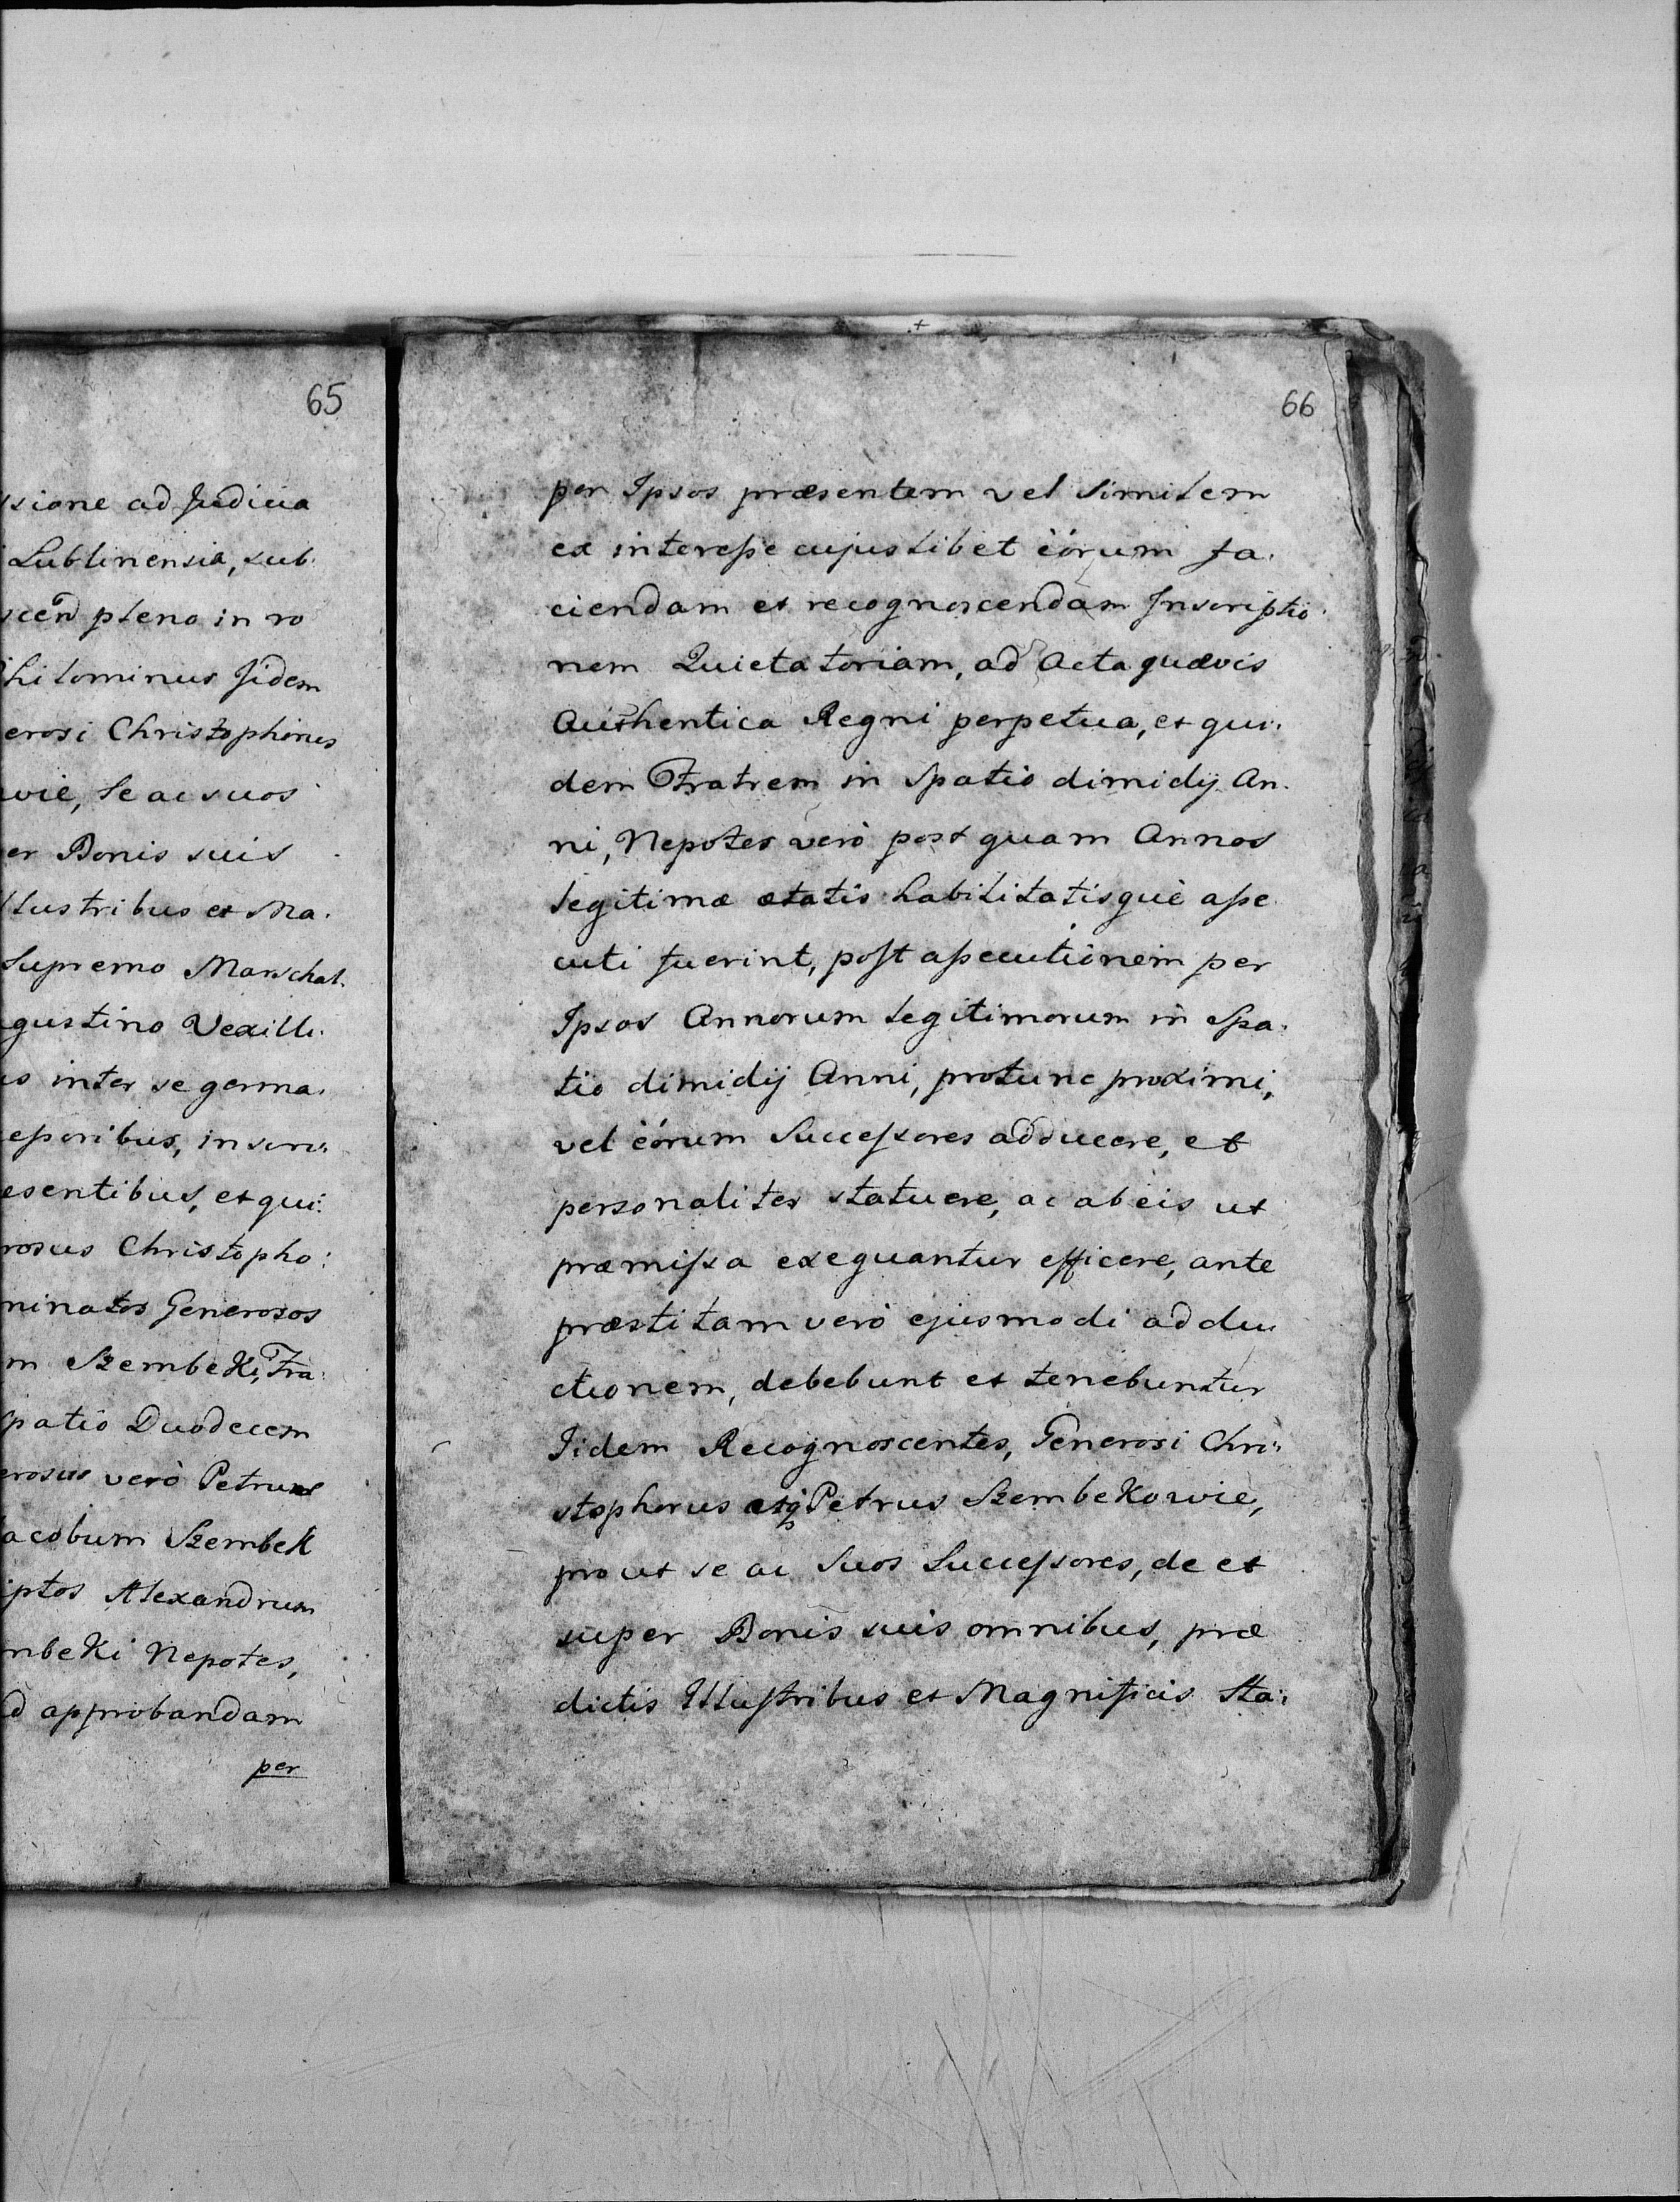 65
sione ad Judicia
Lublinensia, sub
scend pleno in ro
hilominus Jidem
erosi Christophorus
wie, se ac suos
er Bonis suis
llustribus et Ma.
Supremo Marschal.
gustino Vexilli.
is inter se germa.
essoribus, inscri.
esentibus, et qui:
rosus Christopho:
minatos Generosos
m Szembeki, Fra:
patio Duodecem
erosus verò Petrus
acobum Szembek
iptos Alexandrum
mbeki Nepotes,
d approbandam
per
66
per Ipsos præsentem vel similem
ex interesse cujuslibet eórum fa.
ciendam et recognoscendam Inscriptio.
nem Quietatoriam, ad Acta quævis
Authentica Regni perpetua, et qui.
dem Fratrem in Spatio dimidij An.
ni, Nepotes verò post quam Annos
legitimæ ætatis habilitatisquè asse
cuti fuerint, post assecutionem per
Ipsos Annorum legitimorum in Spa.
tio dimidij Anni, protunc proximi,
vel eórum Successores adducere, et
personaliter statuere, ac ab eis ut
præmissa exequantur efficere, ante
præstitam verò ejusmodi addu
ctionem, debebunt et tenebuntur
Jidem Recognoscentes, Generosi Chri:
stophorus atq Petrus Szembekowie,
prout se ac Suos Successores, de et
super Bonis suis omnibus, præ
dictis Illustribus et Magnificis Sta: